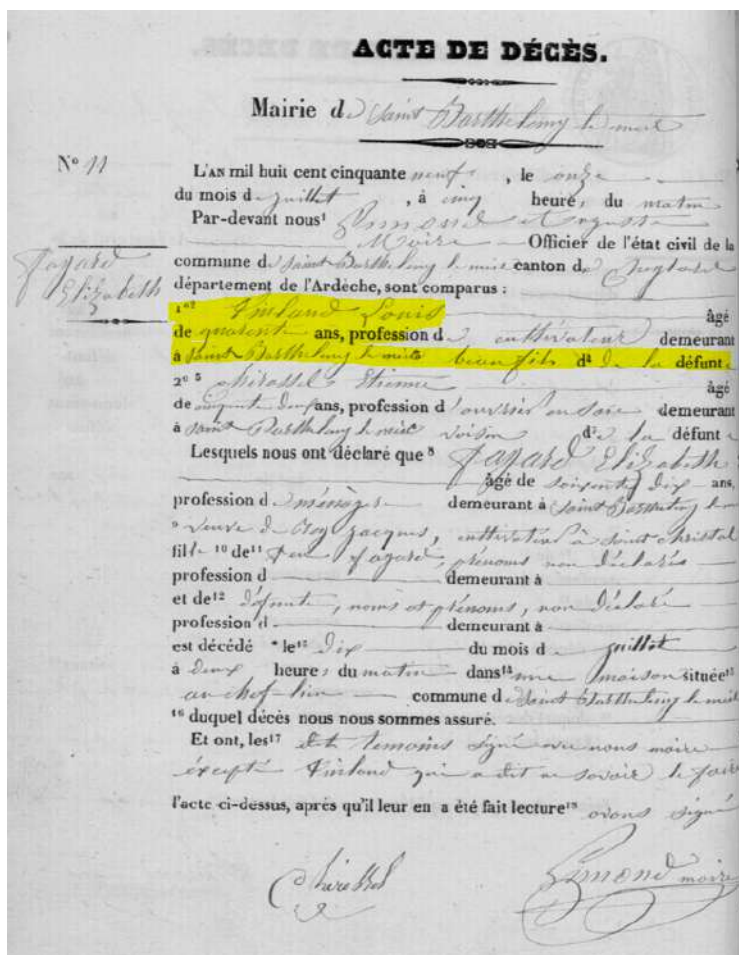 ACTE DE DÉCÈS.
Mairie de Saint Barthelemy le meil
N° 11
L'AN mil huit cent cinquante neuf, le onze
du mois de juillet, à cinq heure, du matin
Par-devant nous¹ Simond Auguste
Maire Officier de l'état civil de la
Fayard
Elizabeth
commune de Saint Barthelemy le meil canton de
département de l'Ardèche, sont comparus :
1° ² Vinland Louis âgé
de quarante ans, profession de cultivateur demeurant
à Saint Barthelemy le meil beau fils d⁴ de la défunte
2° ⁵ Chirassel Etienne âgé
de cinquante deux ans, profession d'ouvrier en soie demeurant
à Saint Barthelemy le meil voisin d⁷ de la défunte
Lesquels nous ont déclaré que ⁸ Fayard Elizabeth
âgé de soixante dix ans,
profession de ménagère demeurant à Saint Barthelemy le meil
⁹ veuve de Roy Jacques, cultivateur à Saint christol
fille ¹⁰ de¹¹ feu fayard, prénoms non déclarés
profession d demeurant à
et de¹² défunte, noms et prénoms, non déclaré
profession d demeurant à
est décédé le¹³ Dix du mois de juillet
à deux heure, du matin dans¹⁴ une maison située¹⁵
au chef-lieu commune de Saint Barthelemy le meil
¹⁶ duquel décès nous nous sommes assuré.
Et ont, les¹⁷ dits temoins signé avec nous maire
excepté Vinland qui a dit ne savoir le faire
l'acte ci-dessus, après qu'il leur en a été fait lecture¹⁸ avons signé
Chirassel
Simond maire